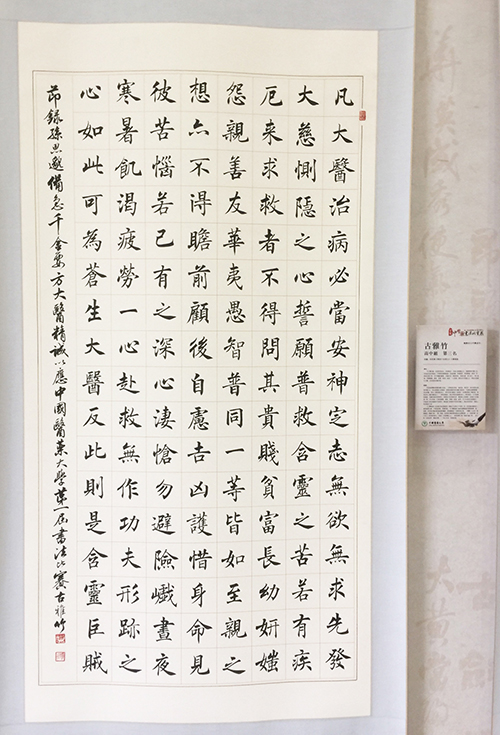 凡大醫治病必當安神定志無欲無求先發
大慈惻隱之心誓願普救含靈之苦若有疾
厄来求救者不得問其貴賤貧富長幼妍媸
怨親善友華夷愚智普同一等皆如至親之
想亦不得瞻前顧後自慮吉凶護惜身命見
彼苦惱若己有之深心淒愴勿避險巇晝夜
寒暑飢渴疲勞一心赴救無作功夫形跡之
心如此可為蒼生大醫反此則是含靈巨賊
節錄孫思邈備急千金要方大醫精誠以應中國醫藥大學第一屆書法比賽古雅竹
古雅竹
高中組 第三名